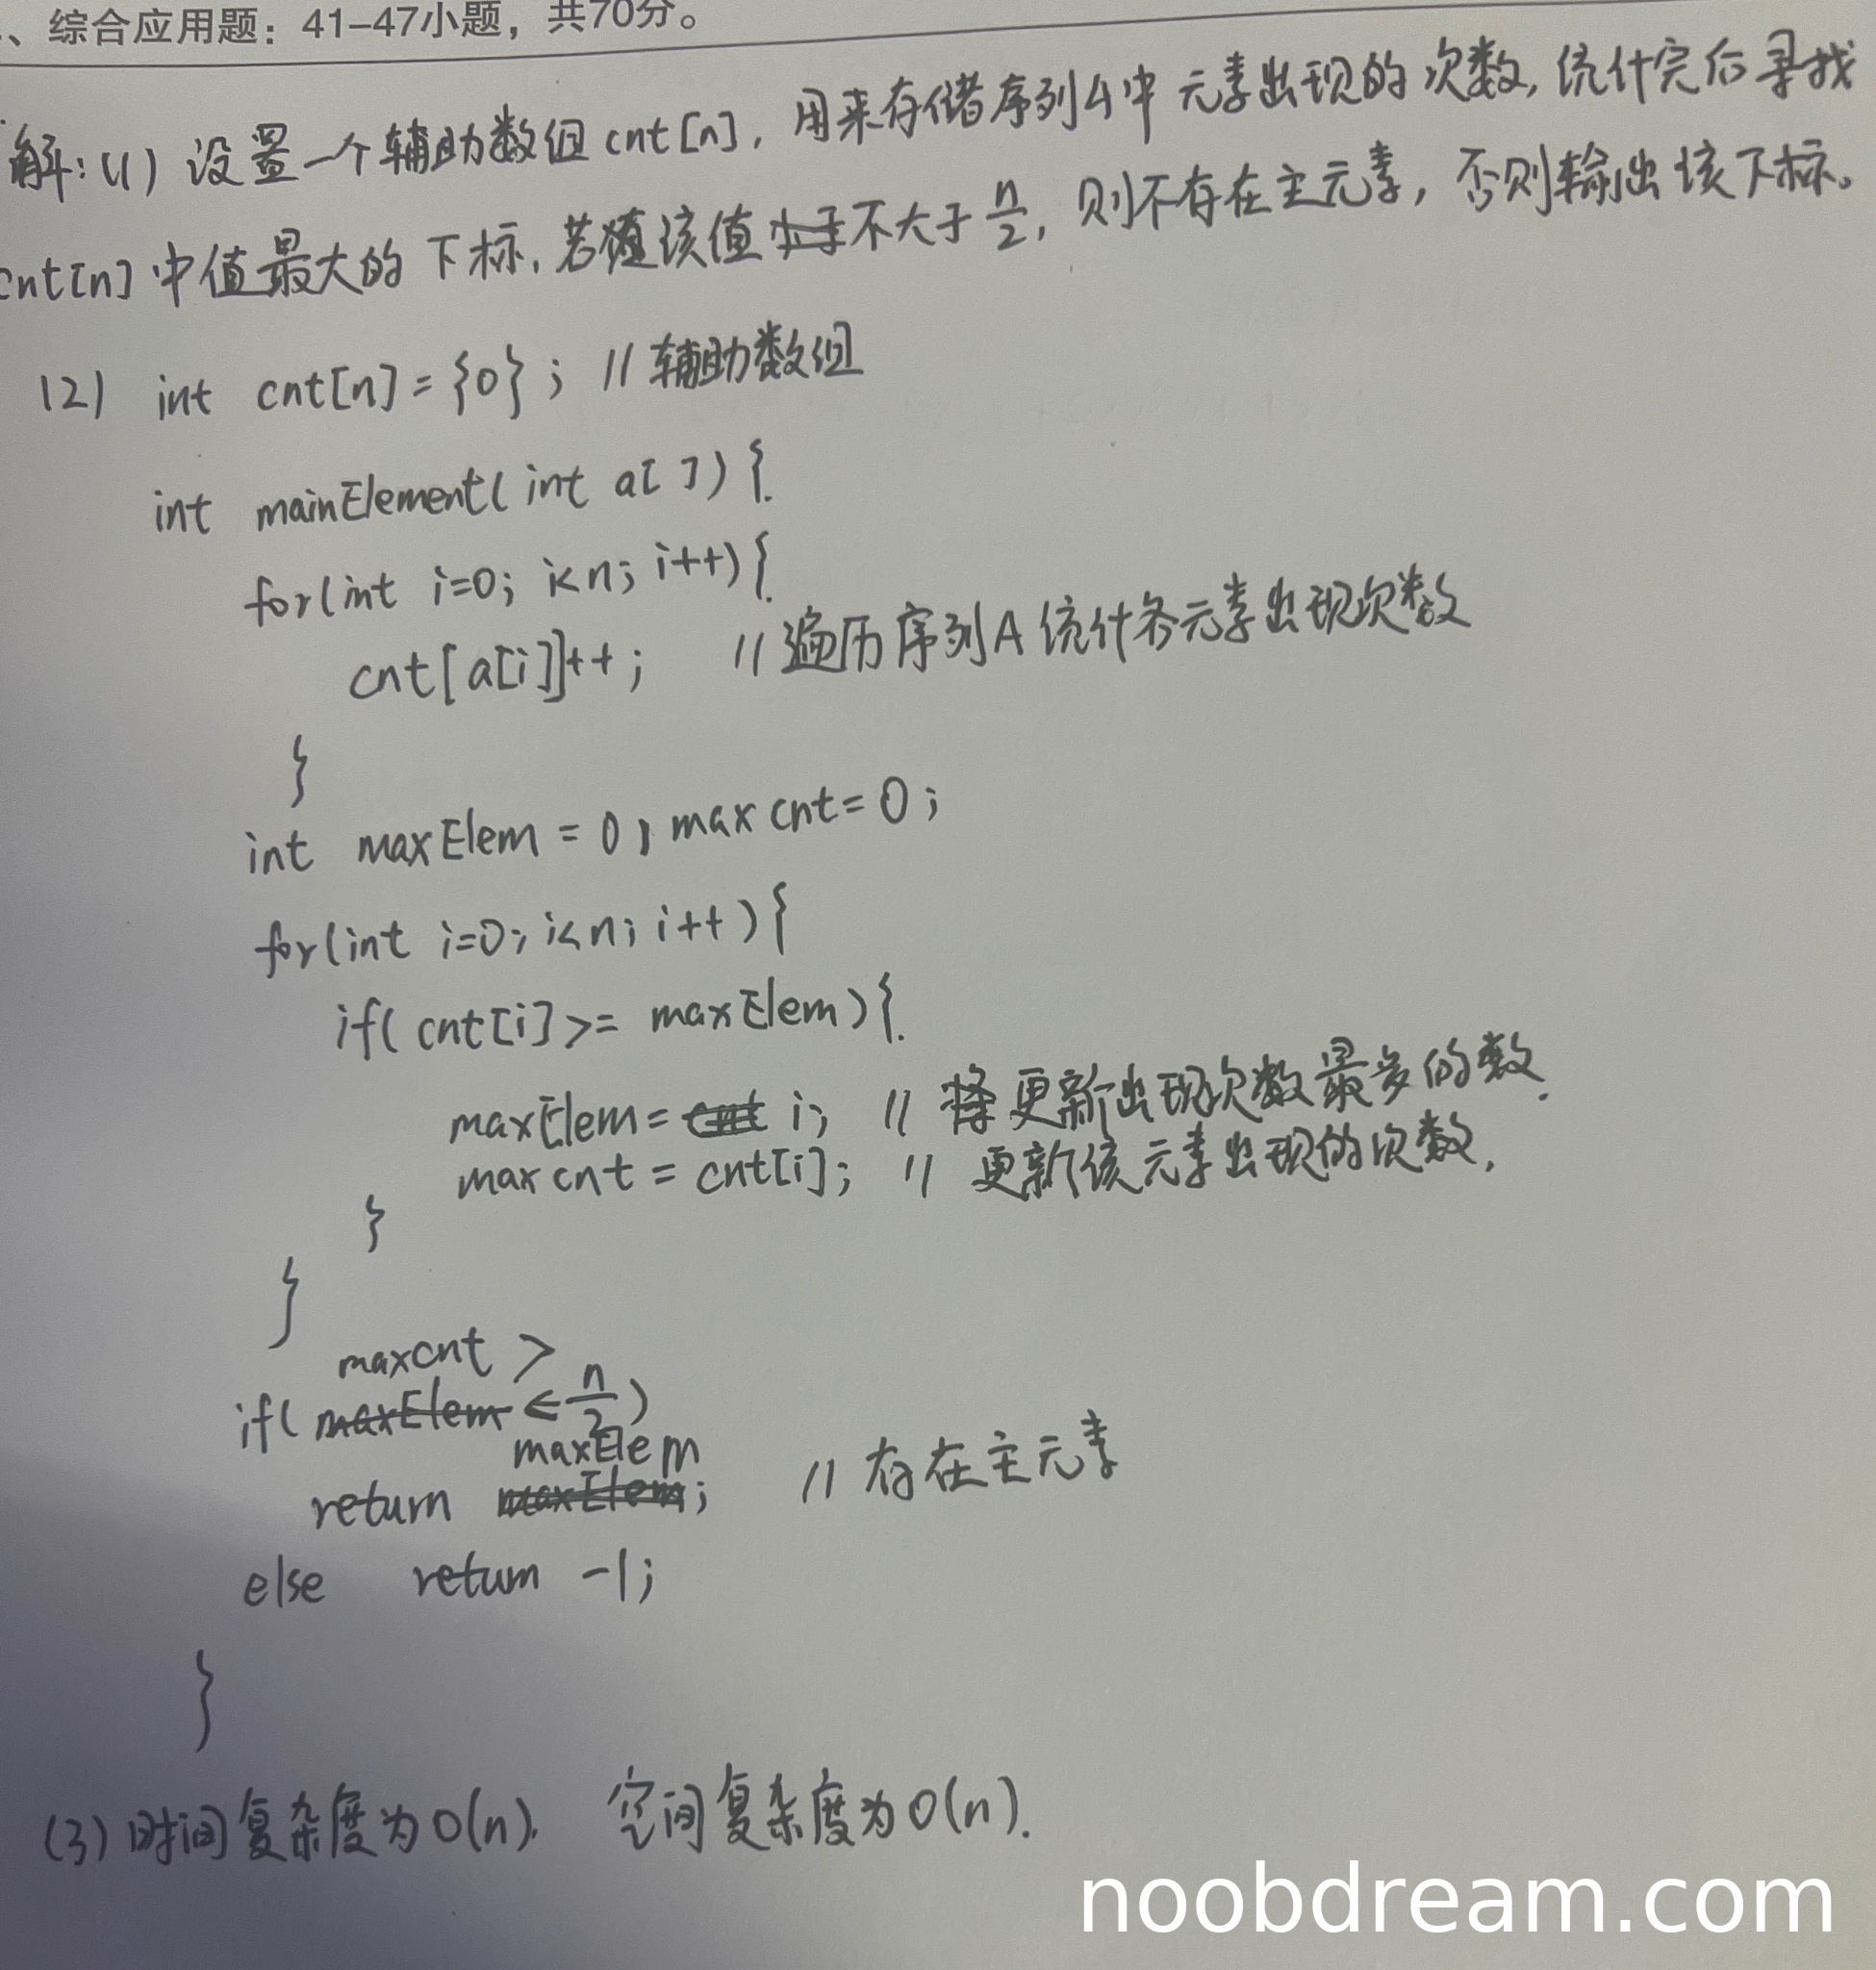 、综合应用题：41–47小题，共70分。
解:(1) 设置一个辅助数组cnt[n]，用来存储序列A中元素出现的次数,统计完后寻找
cnt[n]中值最大的下标,若该值不大于n/2,则不存在主元素,否则输出该下标。
(2) int cnt[n]={0}; //辅助数组
int mainElement(int a[]){
for(int i=0; i<n; i++){
cnt[a[i]]++; //遍历序列A统计各元素出现次数
}
int maxElem = 0, maxcnt=0;
for(int i=0; i<n; i++){
if(cnt[i]>= maxElem){
maxElem= i; //更新出现次数最多的数.
maxcnt = cnt[i]; //更新该元素出现的次数,
}
}
if(maxcnt > n/2)
return maxElem; //存在主元素
else return -1;
}
(3)时间复杂度为O(n). 空间复杂度为O(n).
noobdream.com